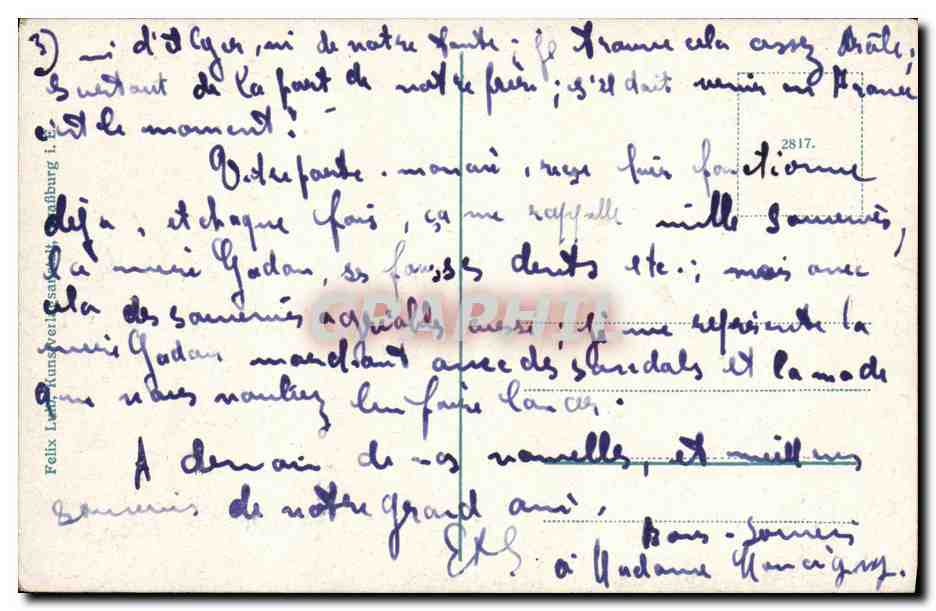 3) ni d'Alger, ni de notre tante; je trouve cela assez drôle,
surtout de la part de notre frère; s'il doit venir en France
c'est le moment!
2817.
Votre porte-monnaie, rouge fonctionne
déjà, et chaque fois, ça me rappelle mille souvenirs,
la mère Gadau, ses fausses dents etc.; mais avec
cela des souvenirs agréables aussi; je me représente la
mère Gadau marchant avec des sandales et la mode
que vous vouliez lui faire lancer.
A demain de vos nouvelles, et meilleurs
souvenirs de votre grand ami.
Bons-Souvenirs
à Madame
Felix Luib, Kunstverlagsanstalt, Straßburg i. E.
CPAPHIL